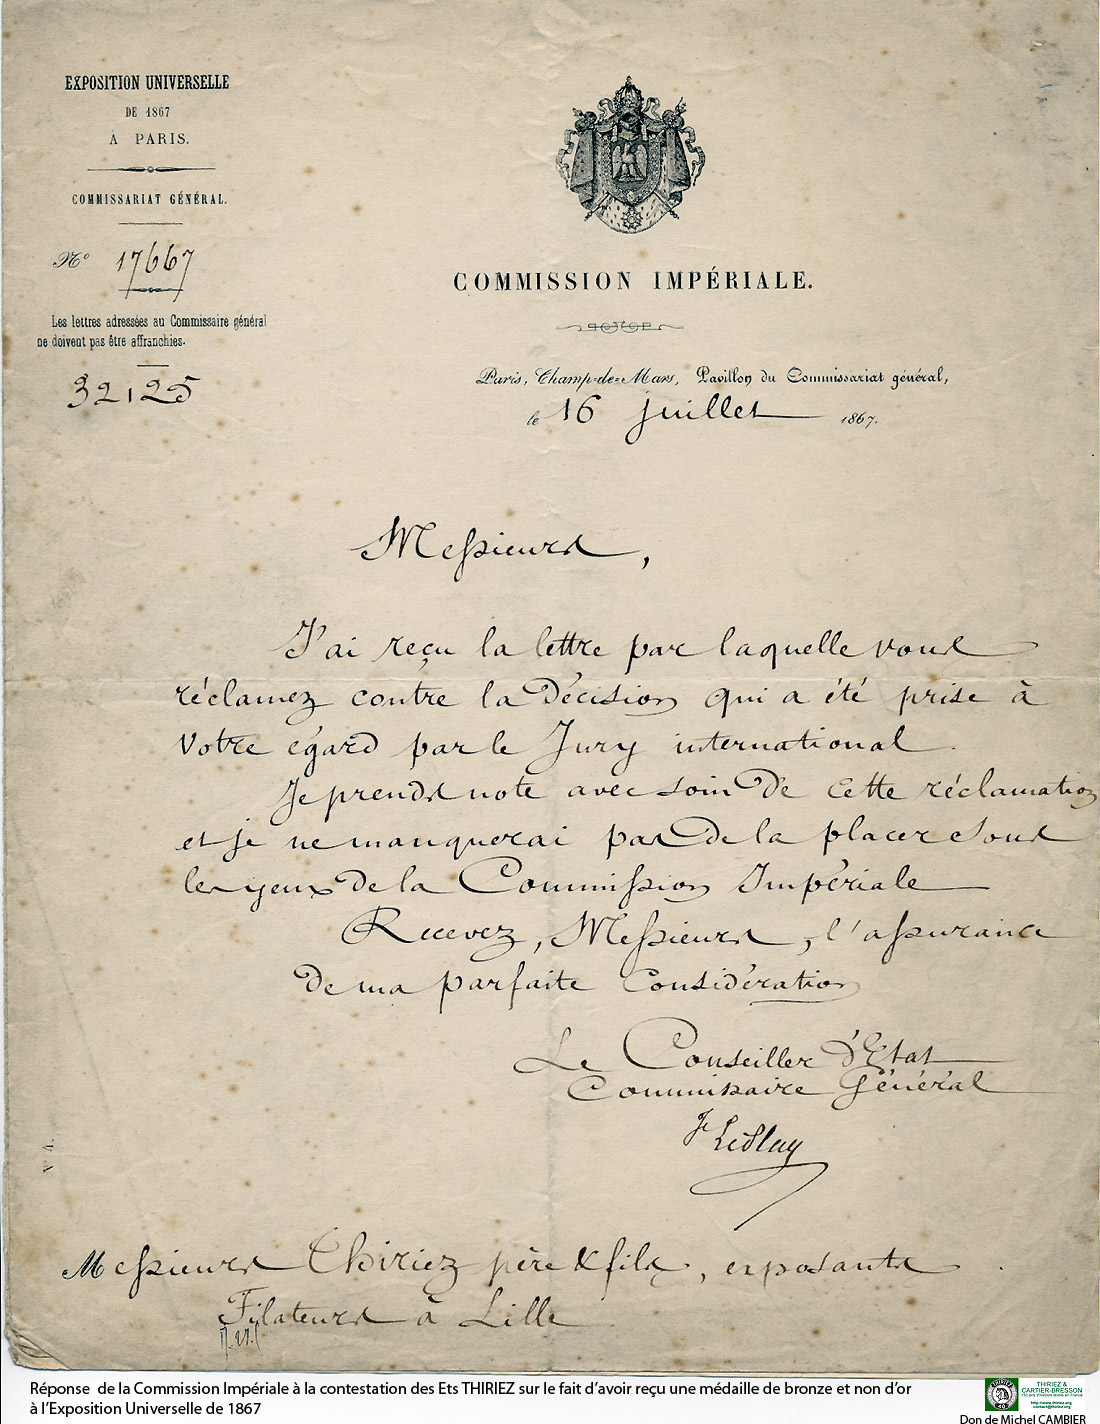 EXPOSITION UNIVERSELLE
DE 1867
À PARIS.
COMMISSARIAT GÉNÉRAL.
N° 17667
Les lettres adressées au Commissaire général
ne doivent pas être affranchies.
32125
COMMISSION IMPÉRIALE.
Paris, Champ-de-Mars, Pavillon du Commissariat général,
le 16 juillet 1867.
Messieurs,
J'ai reçu la lettre par laquelle vous
réclamez contre la Décision qui a été prise à
votre égard par le Jury international.
Je prends note avec soin de cette réclamation
et je ne manquerai pas de la placer sous
les yeux de la Commission Impériale
Recevez, Messieurs, l'assurance
de ma parfaite Considération
Le Conseiller d'Etat
Commissaire Général
F. LePlay
Messieurs Thiriez père & fils, exposants
Filateurs à Lille
Réponse de la Commission Impériale à la contestation des Ets THIRIEZ sur le fait d'avoir reçu une médaille de bronze et non d'or
à l'Exposition Universelle de 1867
THIRIEZ &
CARTIER-BRESSON
http://www.thiriez.org
contact@thiriez.org
Don de Michel CAMBIER